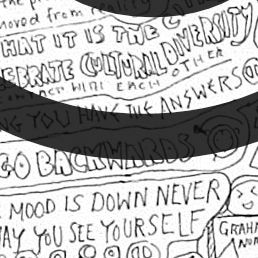 moved from reality
WHAT IT IS THE
CELEBRATE CULTURAL DIVERSITY
WITH EACH OTHER
YOU HAVE THE ANSWERS
GO BACKWARDS
MOOD IS DOWN NEVER
WAY YOU SEE YOURSELF
GRAHA